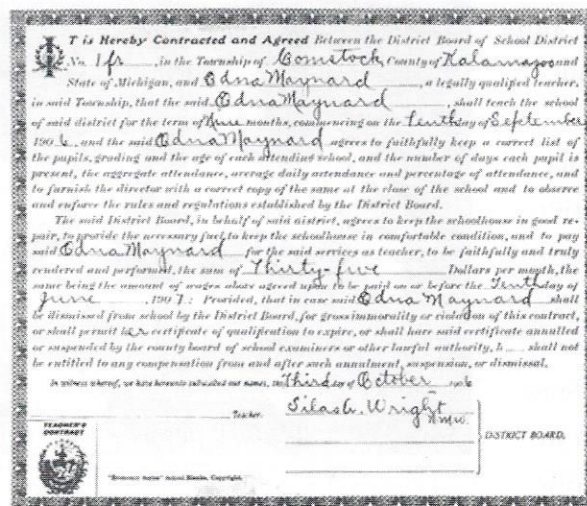 IT is Hereby Contracted and Agreed Between the District Board of School District
No. 1 fr, in the Township of Comstock, County of Kalamazoo and
State of Michigan, and Edna Maynard, a legally qualified teacher,
in said Township, that the said Edna Maynard, shall teach the school
of said district for the term of months, commencing on the Tenth day of September
1906, and the said Edna Maynard agrees to faithfully keep a correct list of
the pupils, grading and the age of each attending school, and the number of days each pupil is
present, the aggregate attendance, average daily attendance and percentage of attendance, and
to furnish the director with a correct copy of the same at the close of the school and to observe
and enforce the rules and regulations established by the District Board.
The said District Board, in behalf of said district, agrees to keep the schoolhouse in good re-
pair, to provide the necessary fuel, to keep the schoolhouse in comfortable condition, and to pay
said Edna Maynard for the said services as teacher, to be faithfully and truly
rendered and performed, the sum of Thirty-five Dollars per month, the
same being the amount of wages above agreed upon to be paid on or before the Tenth day of
June, 1907: Provided, that in case said Edna Maynard shall
be dismissed from school by the District Board, for gross immorality or violation of this contract,
or shall permit her certificate of qualification to expire, or shall have said certificate annulled
or suspended by the county board of school examiners or other lawful authority, h shall not
be entitled to any compensation from and after such annulment, suspension, or dismissal.
In witness whereof, we have hereunto subscribed our names, this Third day of October 1906
Teacher. Silas Wright
DISTRICT BOARD.
TEACHER'S
CONTRACT
School Blanks, Copyright.